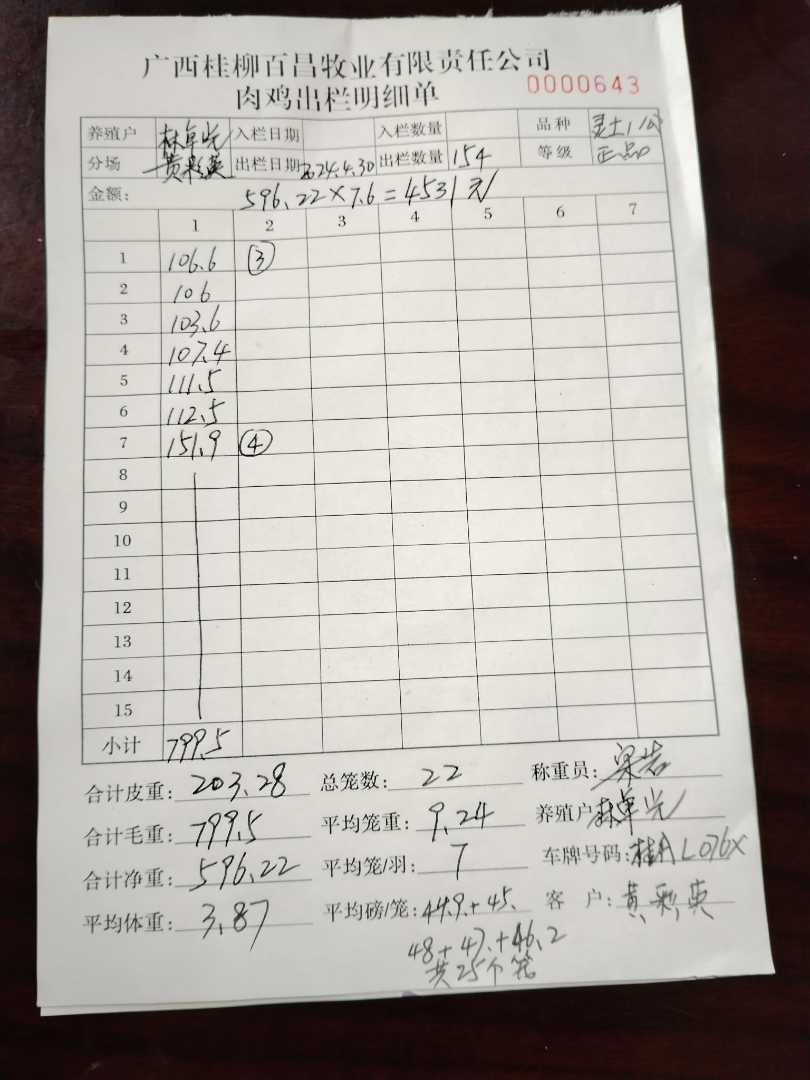 广西桂柳百昌牧业有限责任公司
0000643
肉鸡出栏明细单
养殖户 林卓光 入栏日期 入栏数量 品种
分场 黄彩英 出栏日期 2024.4.30 出栏数量 154 等级 正品
金额: 596.22×7.6=4531元
1 2 3 4 5 6 7
1 106.6 ③
2 106
3 103.6
4 107.4
5 111.5
6 112.5
7 151.9 ④
8
9
10
11
12
13
14
15
小计 799.5
合计皮重: 203.28 总笼数: 22 称重员: 梁岩
合计毛重: 799.5 平均笼重: 9.24 养殖户: 林卓光
合计净重: 596.22 平均笼/羽: 7 车牌号码: 桂 L076X
平均体重: 3.87 平均磅/笼: 44.9+45. 客户: 黄彩英
48+47.+46.2
共25个笼